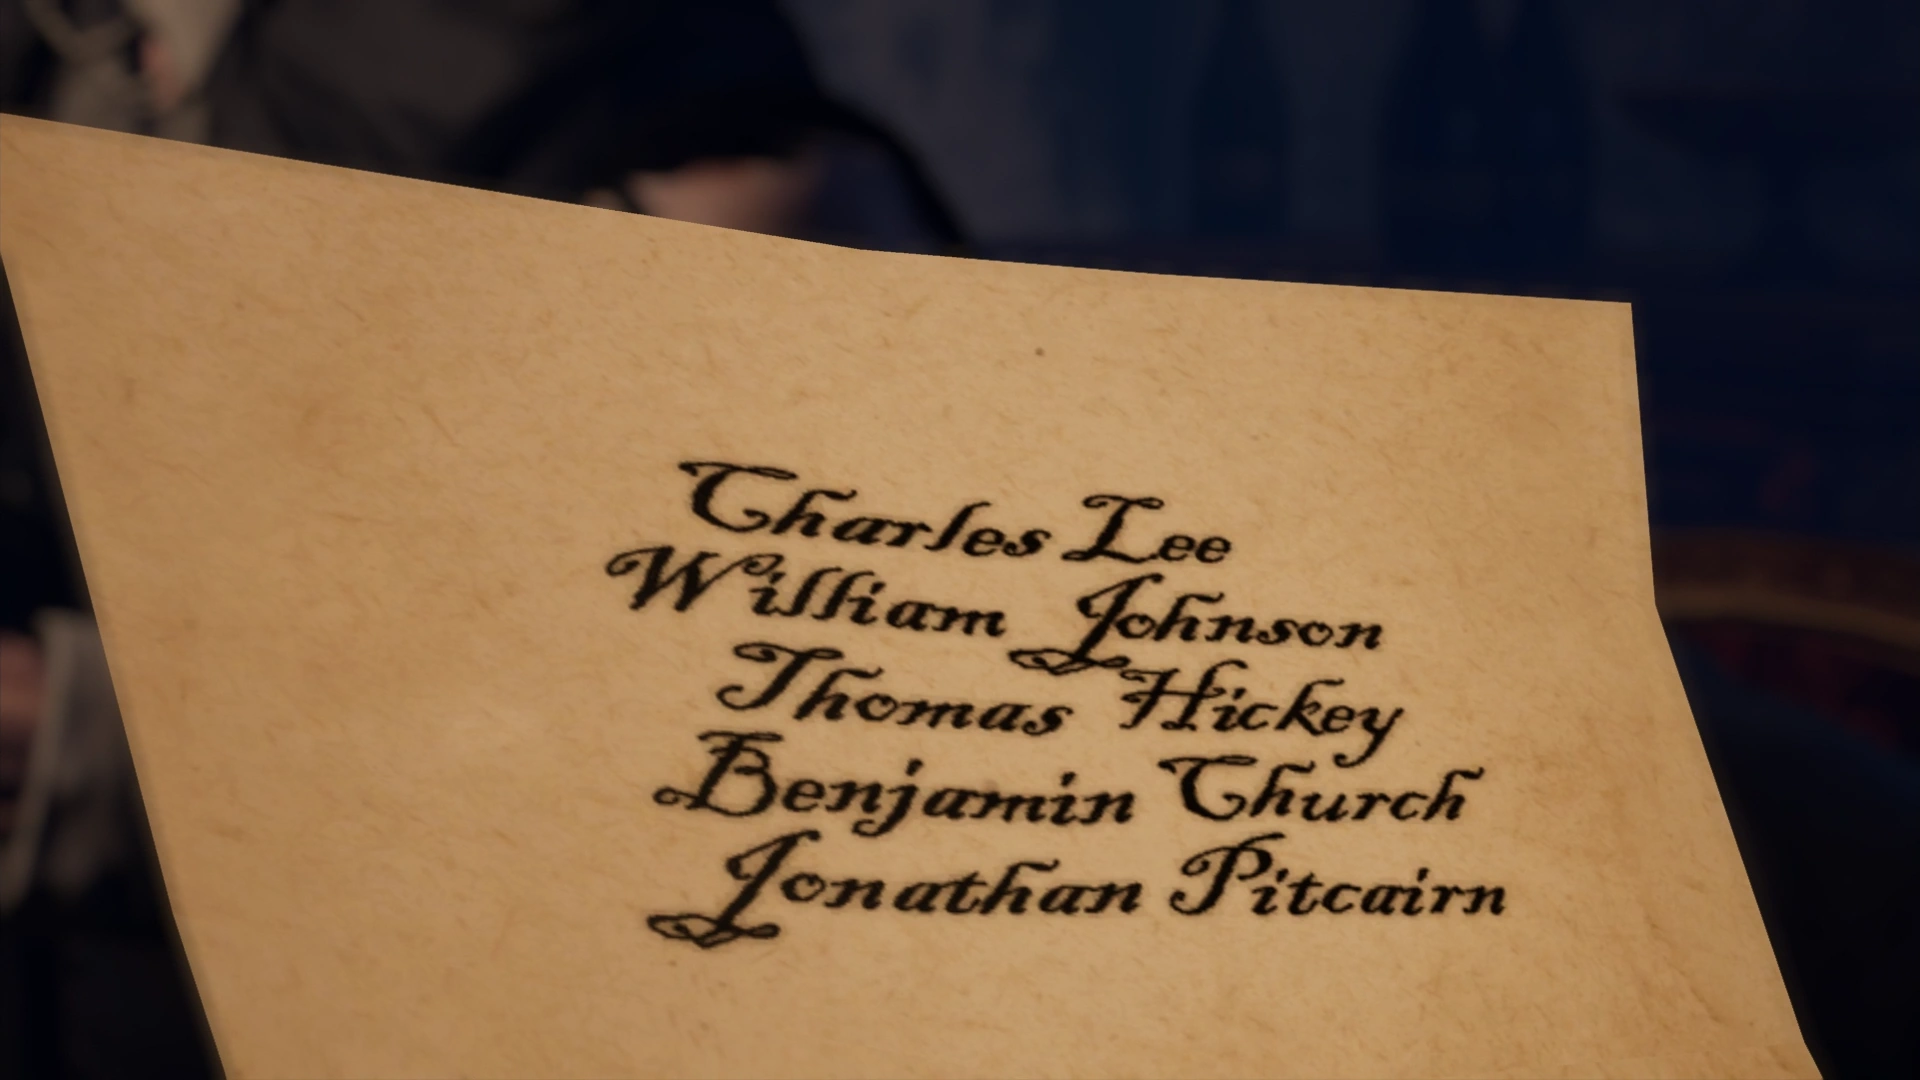 Charles Lee
William Johnson
Thomas Hickey
Benjamin Church
Jonathan Pitcairn